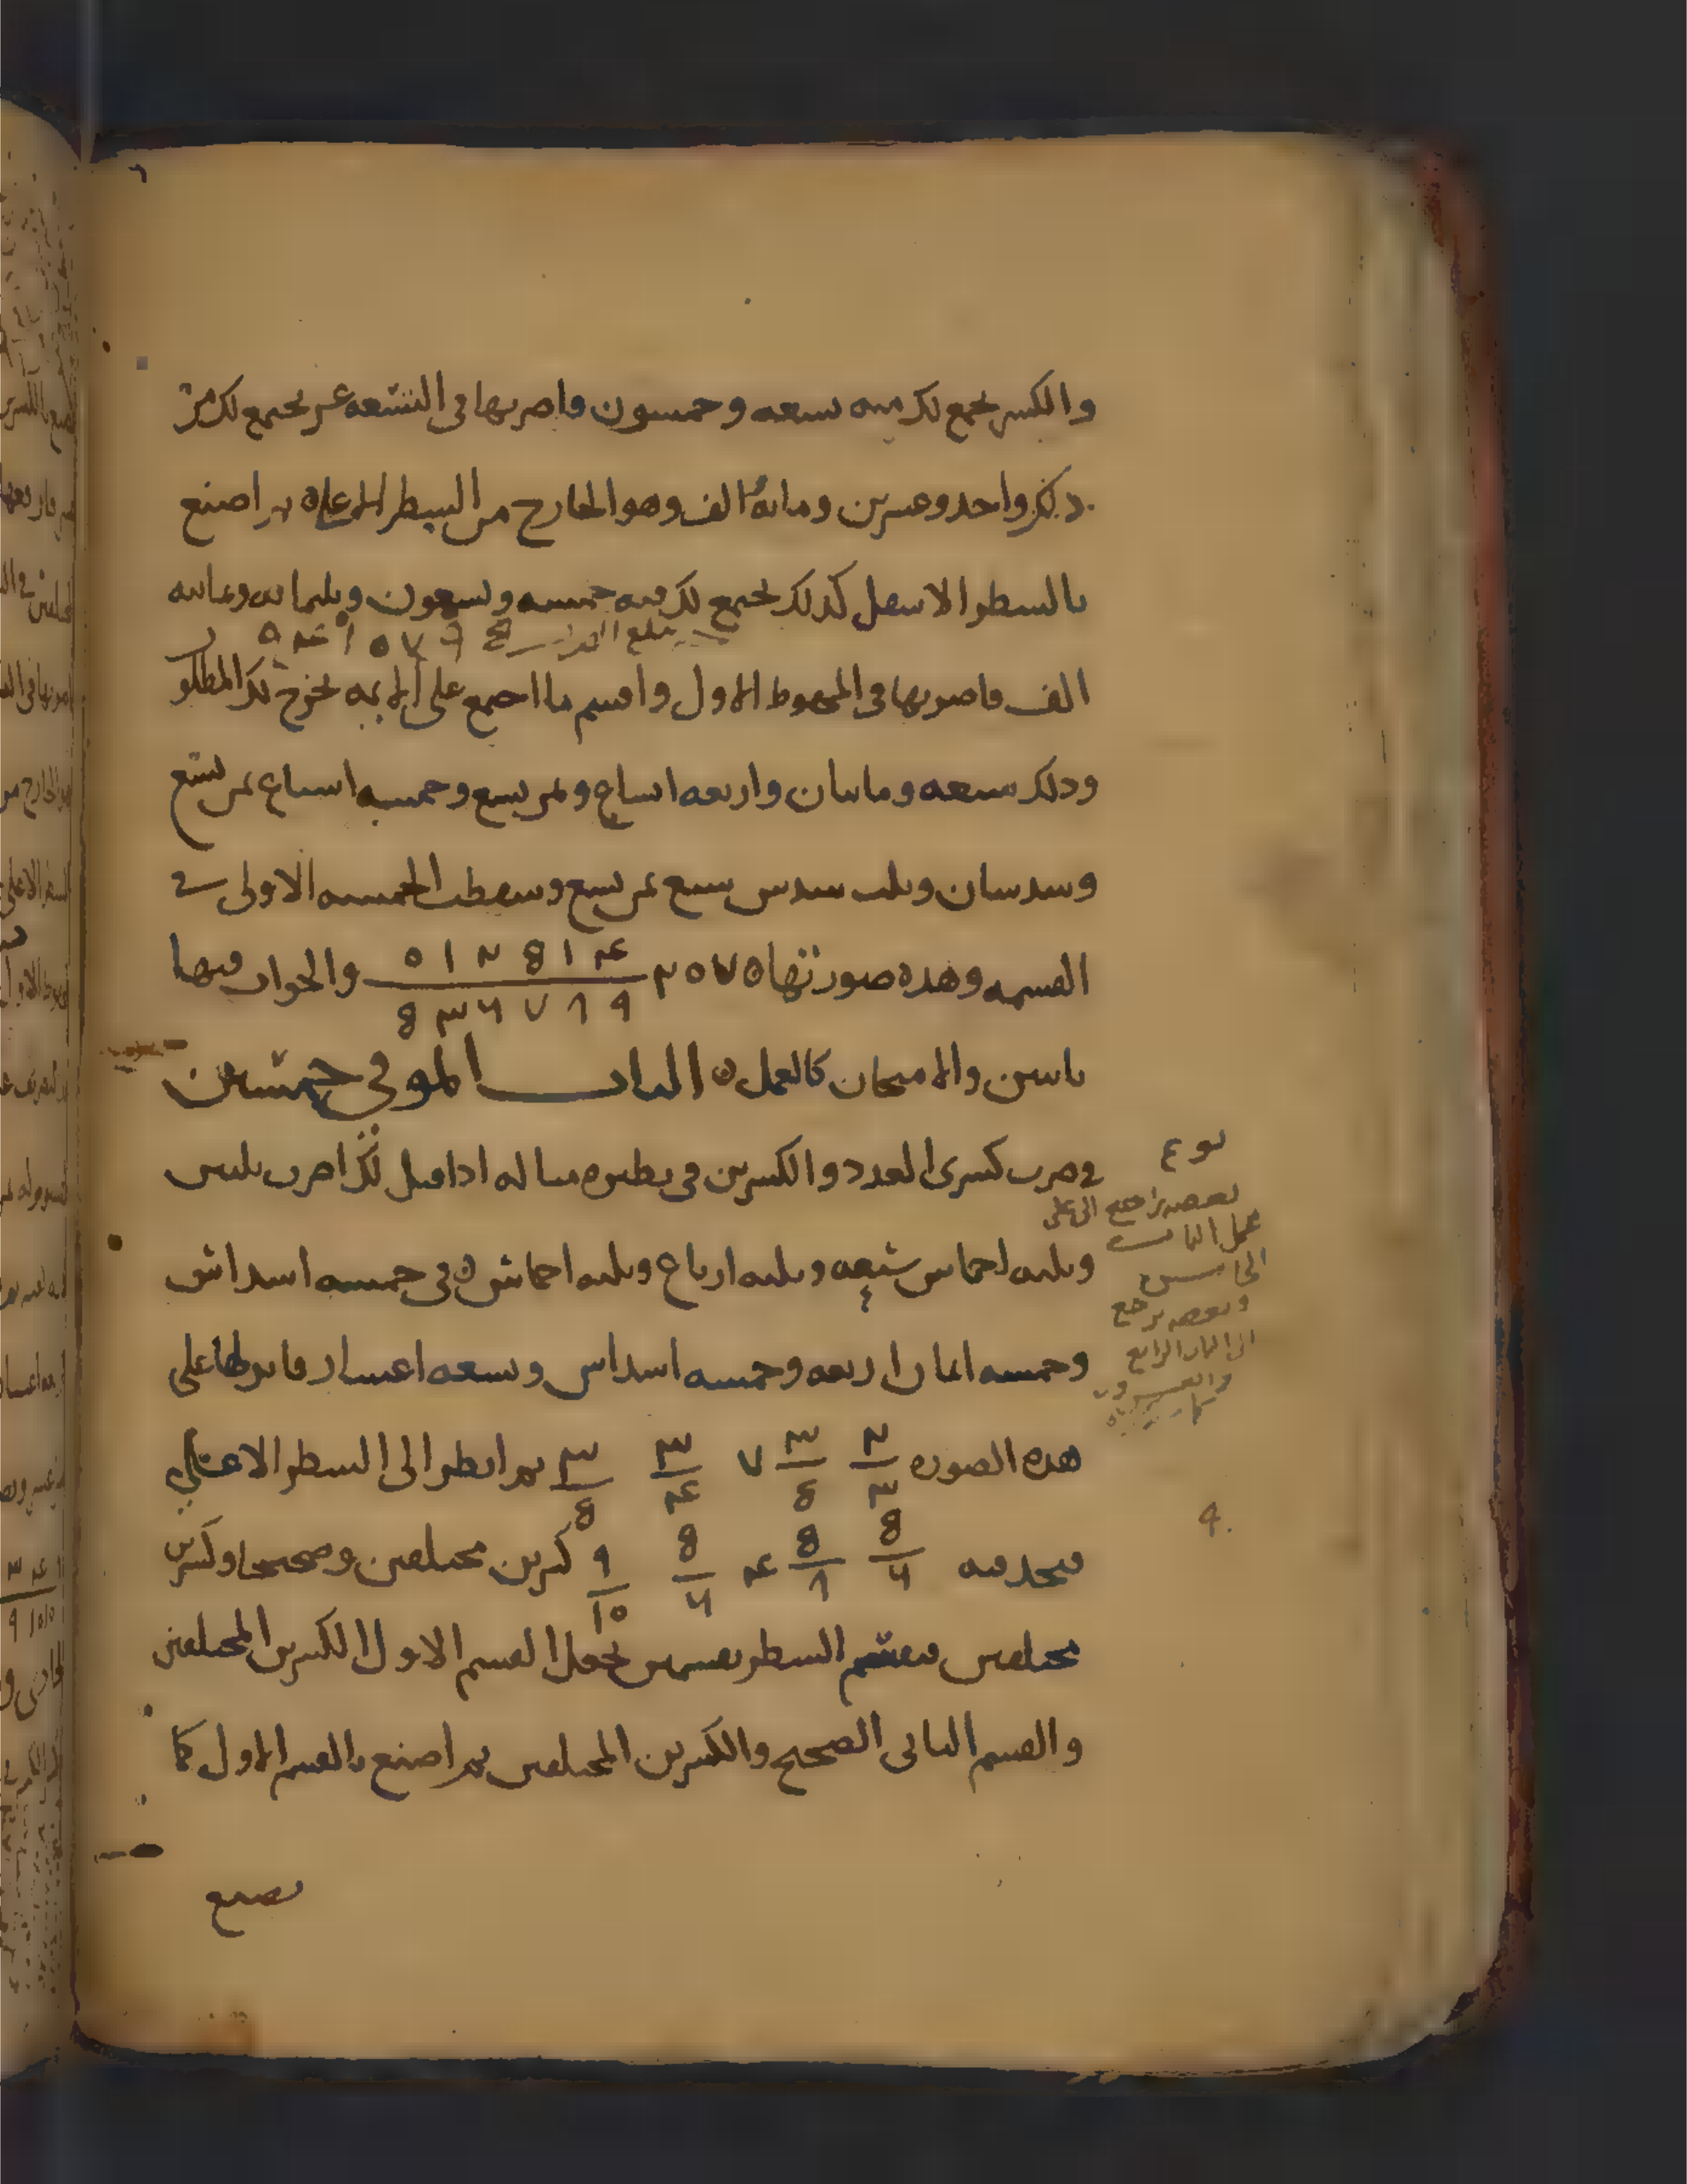 والكسر يجمع لك منه تسعه وخمسون فاضربها في التسعه عشر يجتمع لك من
ذلك واحد وعشرين ومائة الف وهو الخارج من السطر الاعلى ثم اصنع
بالسطر الاسفل كذلك يجتمع لك منه خمسه وتسعون وثلثمائه وثمانيه
الف فاضربها في المحفوظ الاول واقسم ما اجتمع على الايمه يخرج لك المطلوب
وذلك سبعه ومايتان واربعه اتساع وثمن تسع وخمسه اسباع ثمن تسع
وسدسان وثلث سدس سبع ثمن تسع وسقطت الخمسه الاولى في
القسمه وهذه صورتها والجواب فيها
باسين والامتحان كالعمل الباب الموفي خمسين
في ضرب كسرى العدد والكسرين في نظيره مثاله اذا قيل لك اضرب ثلثين
وثلثه اخماس سبعه وثلثه ارباع وثلثه اخماس في خمسه اسداس
وخمسه اثمان اربعه وخمسه اسداس وتسعه اعشار فانزلها على
هذه الصوره ثم انظر الى السطر الاعلى
فيجد فيه كسرين مختلفين وصحيحا وكسرين
مختلفين فيقسم السطر بقسمين يجعل القسم الاول الكسرين المختلفين
والقسم الثاني الصحيح والكسرين المختلفين ثم اصنع بالقسم الاول كما
تصنع
نوع
بعضه راجع الى على
عمل الباب
الخامس
وبعضه يرجع
الى الباب الرابع